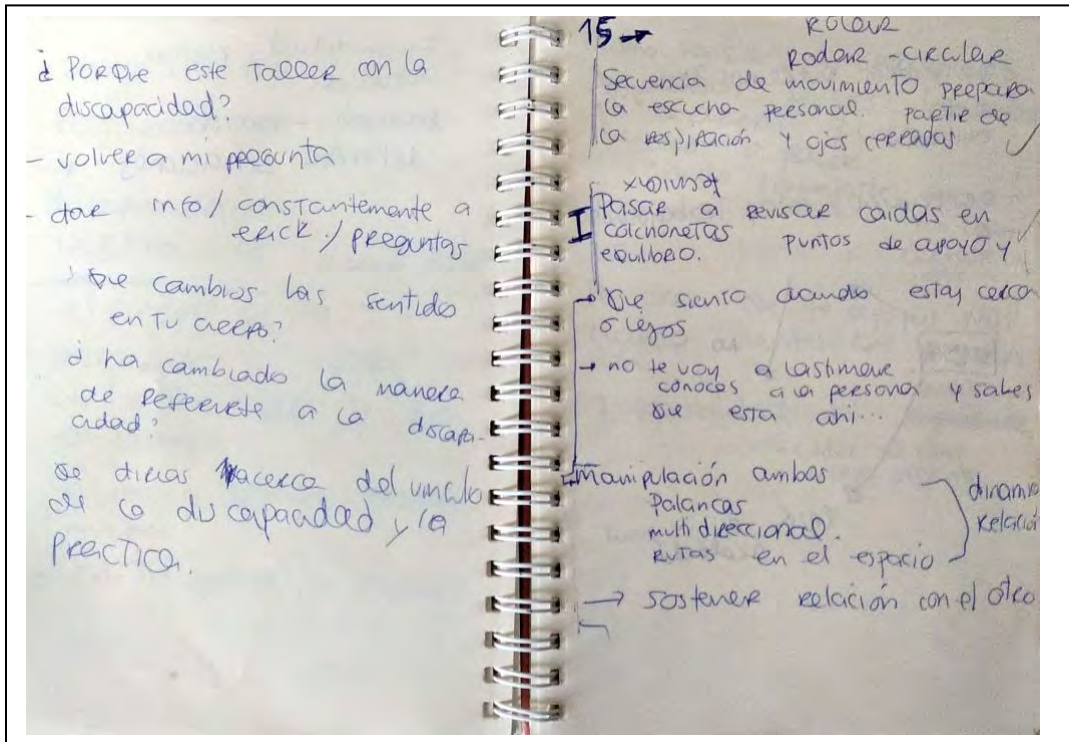 ¿ PORQUE este TALLER con la
discapacidad?
- volver a mi pregunta
- dar info / constantemente a
erick. / preguntas
¿ que cambios has sentido
en Tu cuerpo?
¿ ha cambiado la manera
de referirte a la discapa-
cidad?
acerca del vinculo
de la discapacidad y la
PRACTICA.
15 →
Rodar - circular
Secuencia de movimiento prepara
la escucha personal. partir de
la respiración y ojos cerrados
I Pasar a revisar caidas en
colchonetas puntos de apoyo y
equilibrio.
Que siento cuando estas cerca
o lejos
→ no te voy a lastimar
conoces a la persona y sabes
que esta ahi...
Manipulación ambas
Palancas
multidireccional.
RUTAS en el espacio
dinamic
Relación
→ sostener relación con el otro